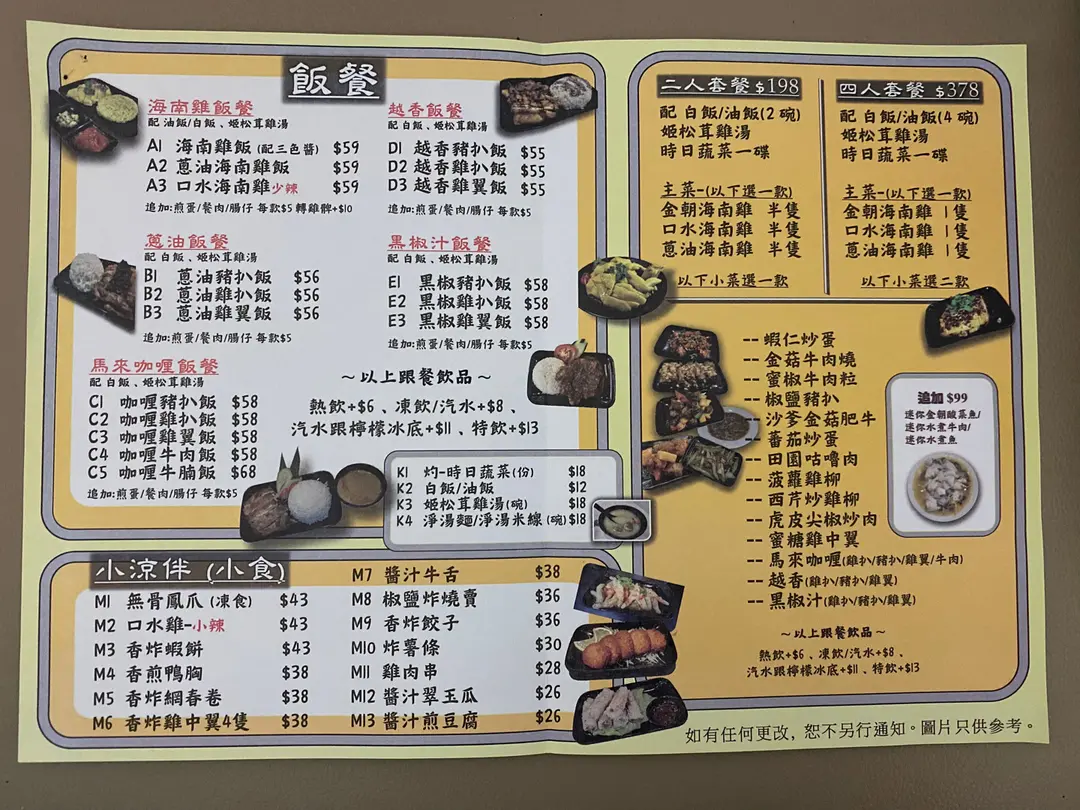 飯餐
海南雞飯餐
配 油飯/白飯、姬松茸雞湯
A1 海南雞飯 (配三色醬) $59
A2 蔥油海南雞飯 $59
A3 口水海南雞少辣 $59
追加:煎蛋/餐肉/腸仔 每款$5 轉雞髀+$10
越香飯餐
配 白飯、姬松茸雞湯
D1 越香豬扒飯 $55
D2 越香雞扒飯 $55
D3 越香雞翼飯 $55
追加:煎蛋/餐肉/腸仔 每款$5
蔥油飯餐
配 白飯、姬松茸雞湯
B1 蔥油豬扒飯 $56
B2 蔥油雞扒飯 $56
B3 蔥油雞翼飯 $56
追加:煎蛋/餐肉/腸仔 每款$5
黑椒汁飯餐
配 白飯、姬松茸雞湯
E1 黑椒豬扒飯 $58
E2 黑椒雞扒飯 $58
E3 黑椒雞翼飯 $58
追加:煎蛋/餐肉/腸仔 每款$5
馬來咖喱飯餐
配 白飯、姬松茸雞湯
C1 咖喱豬扒飯 $58
C2 咖喱雞扒飯 $58
C3 咖喱雞翼飯 $58
C4 咖喱牛肉飯 $58
C5 咖喱牛腩飯 $68
追加:煎蛋/餐肉/腸仔 每款$5
～以上跟餐飲品～
熱飲+$6、凍飲/汽水+$8、
汽水跟檸檬冰底+$11、特飲+$13
K1 灼-時日蔬菜(份) $18
K2 白飯/油飯 $12
K3 姬松茸雞湯(碗) $18
K4 淨湯麵/淨湯米線 (碗) $18
小涼伴 (小食)
M1 無骨鳳爪 (凍食) $43
M2 口水雞-小辣 $43
M3 香炸蝦餅 $43
M4 香煎鴨胸 $38
M5 香炸網春卷 $38
M6 香炸雞中翼4隻 $38
M7 醬汁牛舌 $38
M8 椒鹽炸燒賣 $36
M9 香炸餃子 $36
M10 炸薯條 $30
M11 雞肉串 $28
M12 醬汁翠玉瓜 $26
M13 醬汁煎豆腐 $26
二人套餐 $198
配 白飯/油飯(2 碗)
姬松茸雞湯
時日蔬菜一碟
主菜-(以下選一款)
金朝海南雞 半隻
口水海南雞 半隻
蔥油海南雞 半隻
以下小菜選一款
四人套餐 $378
配 白飯/油飯(4 碗)
姬松茸雞湯
時日蔬菜一碟
主菜-(以下選一款)
金朝海南雞 1隻
口水海南雞 1隻
蔥油海南雞 1隻
以下小菜選二款
-- 蝦仁炒蛋
-- 金菇牛肉燒
-- 蜜椒牛肉粒
-- 椒鹽豬扒
-- 沙爹金菇肥牛
-- 蕃茄炒蛋
-- 田園咕嚕肉
-- 菠蘿雞柳
-- 西芹炒雞柳
-- 虎皮尖椒炒肉
-- 蜜糖雞中翼
-- 馬來咖喱(雞扒/豬扒/雞翼/牛肉)
-- 越香(雞扒/豬扒/雞翼)
-- 黑椒汁(雞扒/豬扒/雞翼)
追加 $99
迷你金朝酸菜魚/
迷你水煮牛肉/
迷你水煮魚
～以上跟餐飲品～
熱飲+$6、凍飲/汽水+$8、
汽水跟檸檬冰底+$11、特飲+$13
如有任何更改，恕不另行通知。圖片只供參考。